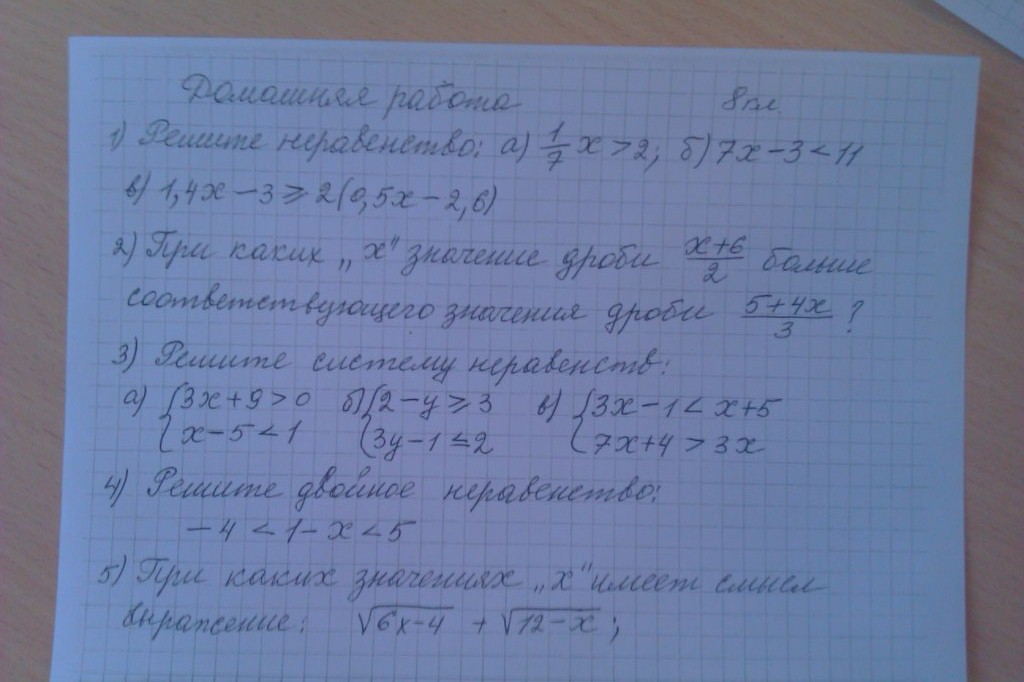 Домашняя работа 8 кл.
1) Решите неравенство: а) 1/7 x > 2; б) 7x - 3 < 11
в) 1,4x - 3 ⩾ 2(0,5x - 2,6)
2) При каких „x" значение дроби (x+6)/2 больше
соответствующего значения дроби (5+4x)/3 ?
3) Решите систему неравенств:
а) { 3x + 9 > 0 б) { 2 - y ⩾ 3 в) { 3x - 1 < x + 5
x - 5 < 1 3y - 1 ⩽ 2 7x + 4 > 3x
4) Решите двойное неравенство:
- 4 < 1 - x < 5
5) При каких значениях „x" имеет смысл
выражение: √(6x-4) + √(12-x) ;